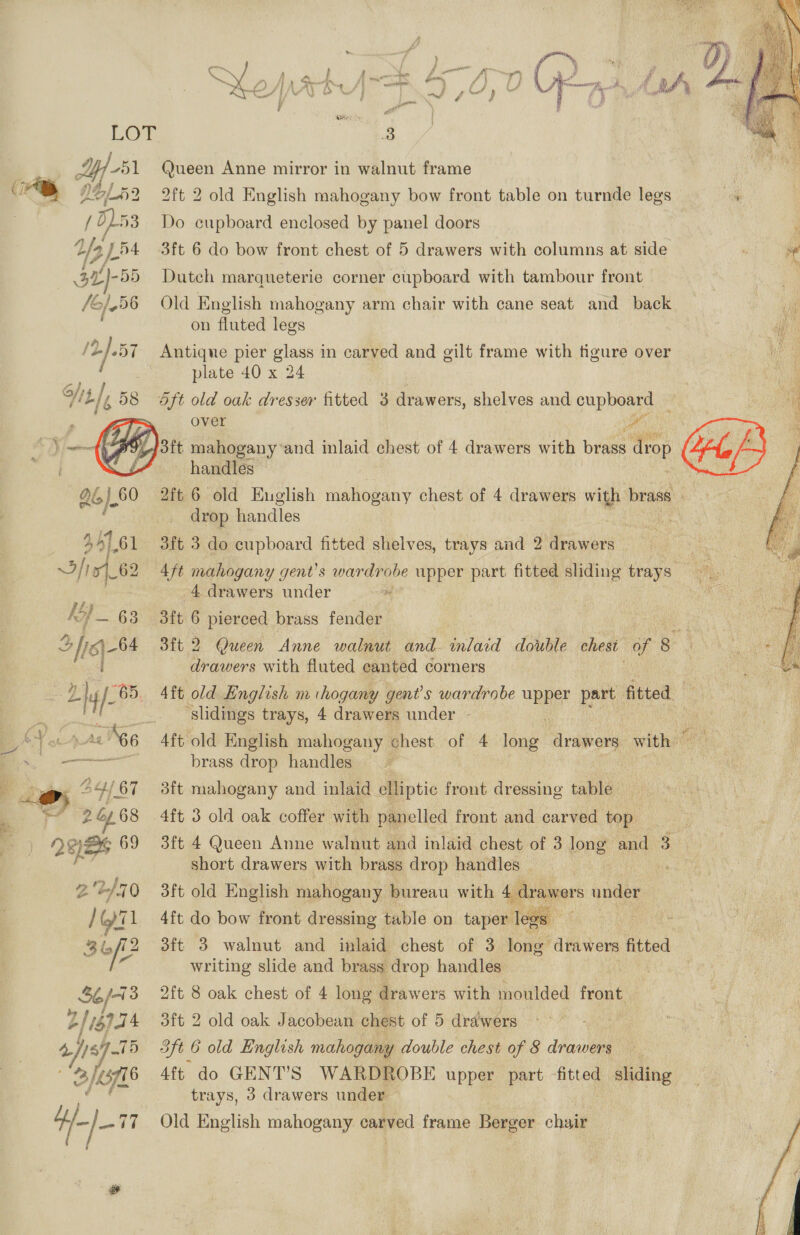 LOT 3
24/- 51 Queen Anne mirror in walnut frame
52 2ft 2 old English mahogany bow front table on turnde legs
53 Do cupboard enclosed by panel doors
54 3ft 6 do bow front chest of 5 drawers with columns at side
55 Dutch marqueterie corner cupboard with tambour front
56 Old English mahogany arm chair with cane seat and back
on fluted legs
57 Antique pier glass in carved and gilt frame with figure over
plate 40 x 24
58 5ft old oak dresser fitted 3 drawers, shelves and cupboard
over
3ft mahogany and inlaid chest of 4 drawers with brass drop
handles
60 2ft 6 old English mahogany chest of 4 drawers with brass
drop handles
61 3ft 3 do cupboard fitted shelves, trays and 2 drawers
62 4ft mahogany gent's wardrobe upper part fitted sliding trays
4 drawers under
63 3ft 6 pierced brass fender
64 3ft 2 Queen Anne walnut and inlaid double chest of 8
drawers with fluted canted corners
65 4ft old English mahogany gent's wardrobe upper part fitted
slidings trays, 4 drawers under
66 4ft old English mahogany chest of 4 long drawers with
brass drop handles
24/ 67 3ft mahogany and inlaid elliptic front dressing table
26/ 68 4ft 3 old oak coffer with panelled front and carved top
69 3ft 4 Queen Anne walnut and inlaid chest of 3 long and 3
short drawers with brass drop handles
70 3ft old English mahogany bureau with 4 drawers under
71 4ft do bow front dressing table on taper legs
72 3ft 3 walnut and inlaid chest of 3 long drawers fitted
writing slide and brass drop handles
73 2ft 8 oak chest of 4 long drawers with moulded front
74 3ft 2 old oak Jacobean chest of 5 drawers
75 3ft 6 old English mahogany double chest of 8 drawers
76 4ft do GENT'S WARDROBE upper part fitted sliding
trays, 3 drawers under
4/-/- 77 Old English mahogany carved frame Berger chair